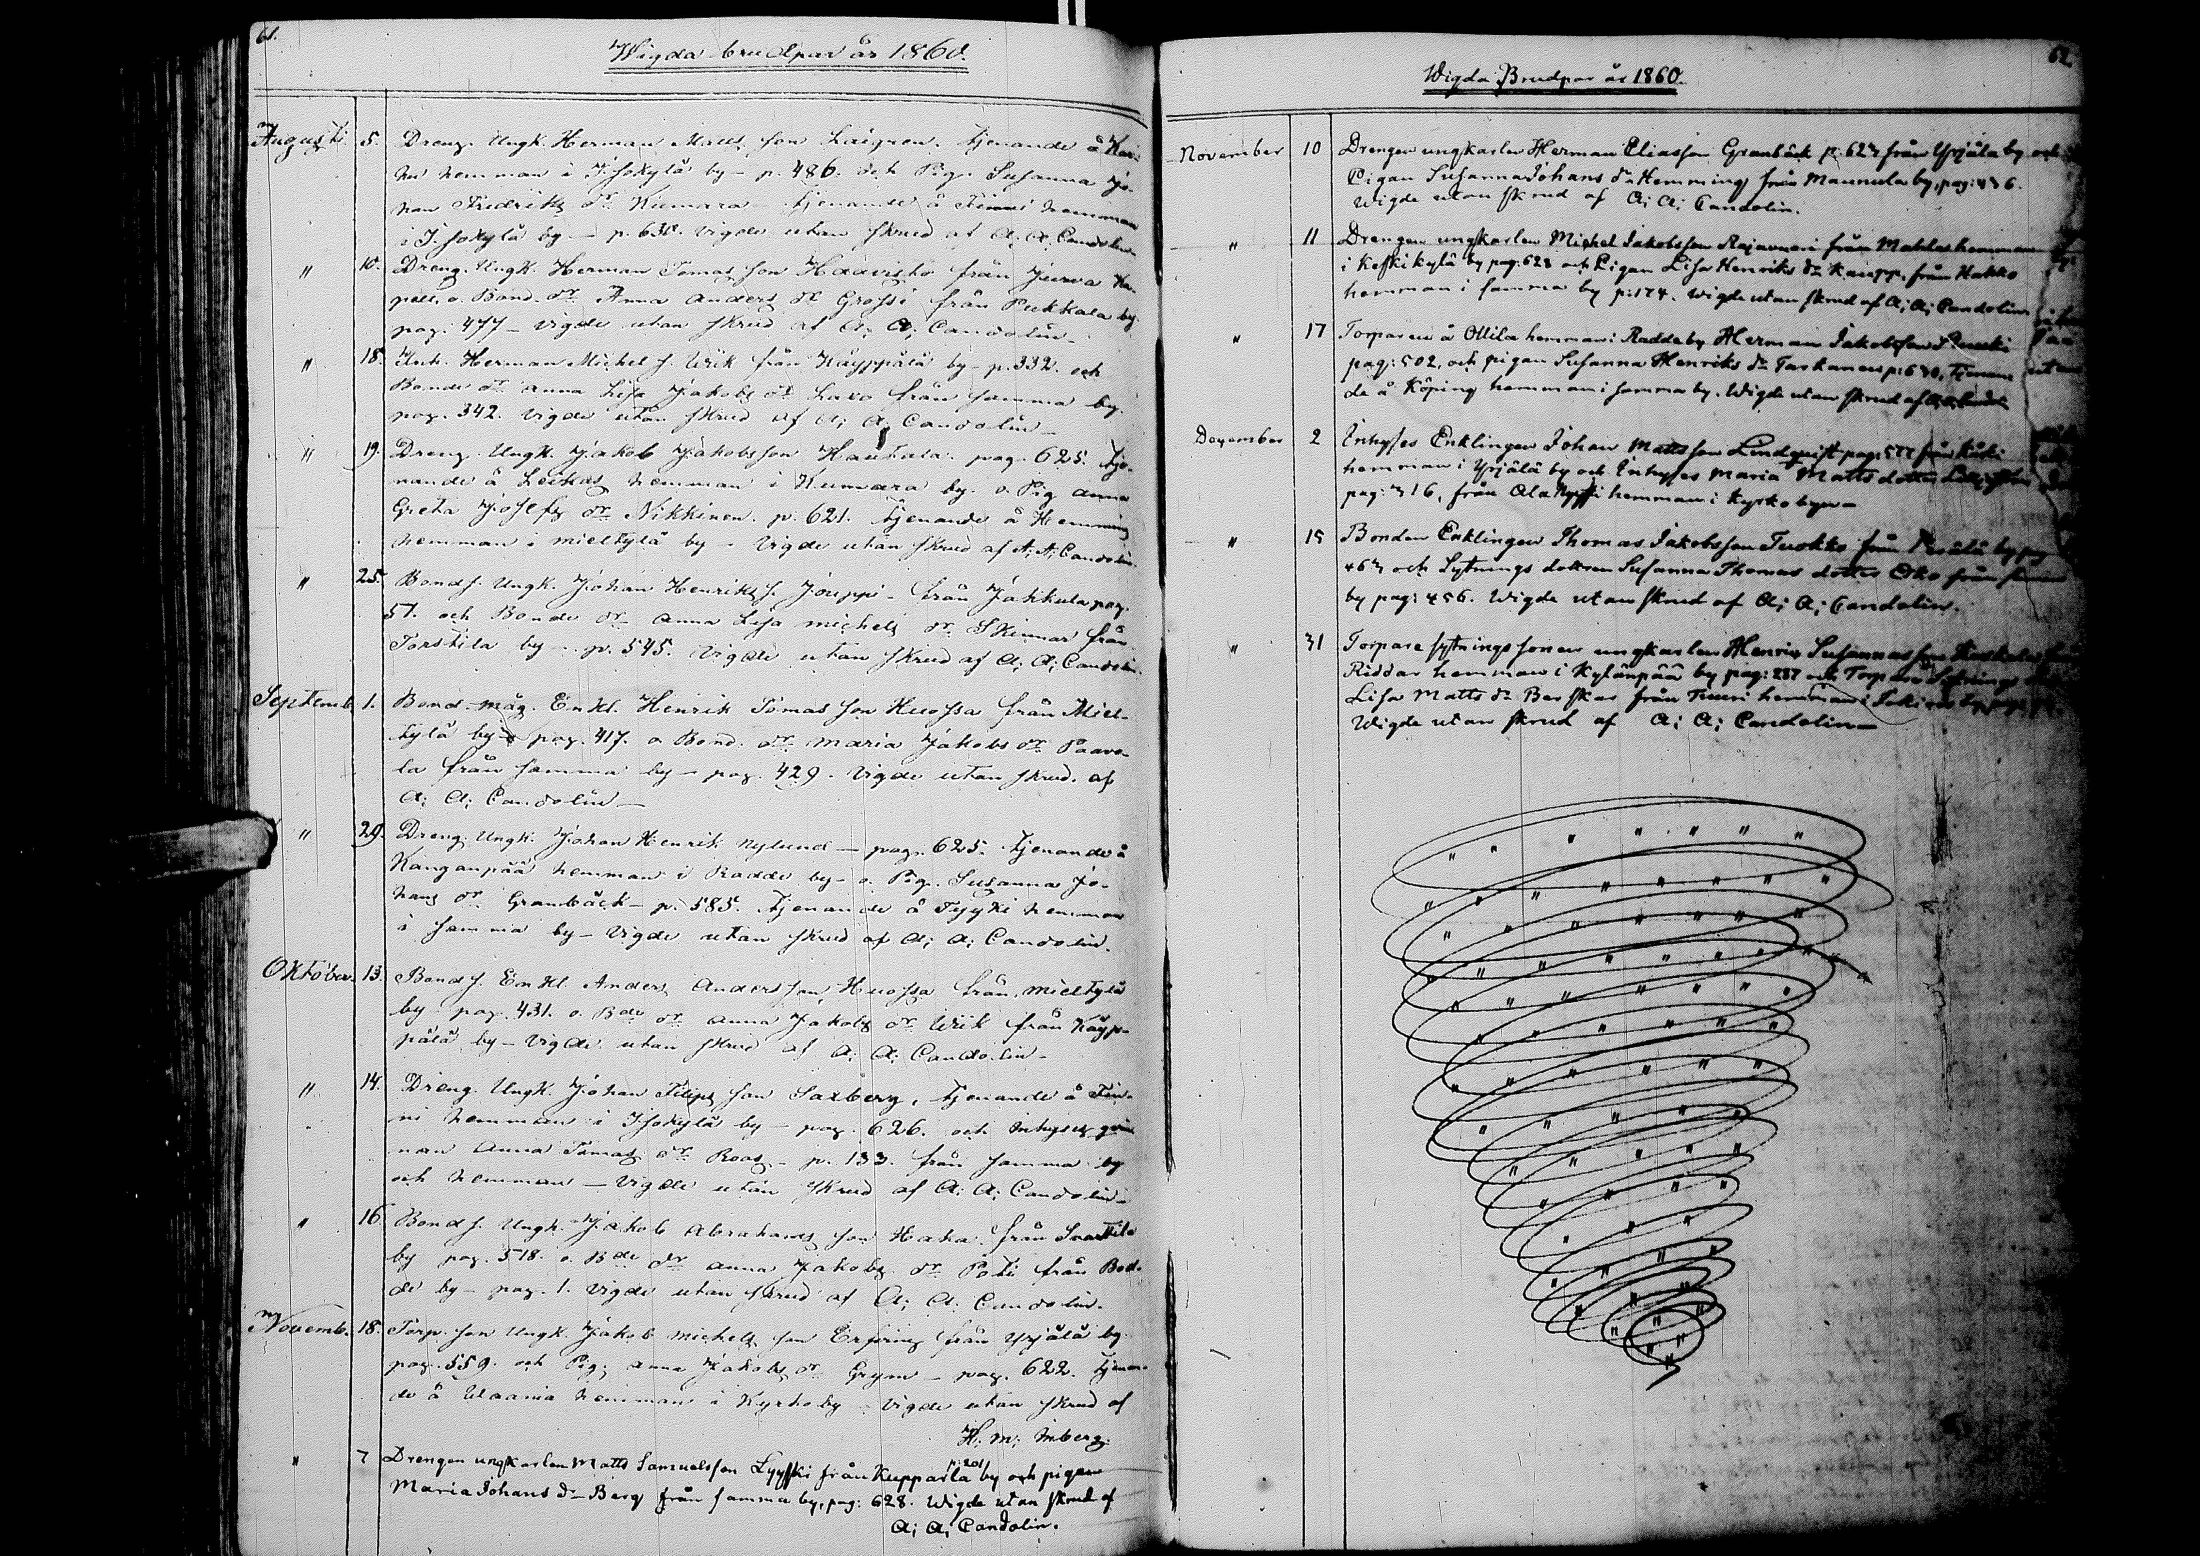 61.
Wigda brudpar år 1860.
Augusti 5. Dreng. Ungk. Herman Matts son Laignen. tjenande å
hemman i Isokylä by - p. 486. och Pig. Susanna Jo-
han Fredriks dr Kumara tjenande å Finni hemman
i Isokylä by - p. 630. vigde utan skrud af A; A; Candolin
" 10. Dreng. Ungk. Herman Tomas son Haavisto från Jurva Ka-
pell, o. Bond. dr Anna Anders dr Grossi från Pukkala by
pag. 477 - vigde utan skrud af A; A; Candolin -
" 18. Inh. Herman Michel s. Wik från Käyppälä by - p. 332. och
Bonde dr Anna Lisa Jakobs dr Lavo från samma by.
pag. 342. vigde utan skrud af A; A; Candolin -
" 19. Dreng. Ungk. Jakob Jakobsson Hautala. pag. 625. tje-
nande å Leikas hemman i Kumara by. o. Pig. Anna
Greta Josefs dr Nikkinen. p. 621. tjenande å Hemming
hemman i Mieltylä by - vigde utan skrud af A; A; Candolin.
" 25. Bonds. Ungk. Johan Henriks s. Jouppi - från Jakkula pag.
51. och Bonde dr Anna Lisa Michels dr Skinnar från
Torstila by - p. 545. vigde utan skrud af A; A; Candolin.
Septemb. 1. Bond-måg. Enkl. Henrik Tomas son Huossa från Miel-
tylä by - pag. 417. o. Bond. dr Maria Jakobs dr Paavo-
la från samma by - pag. 429. vigde utan skrud. af
A; A; Candolin -
" 29. Dreng. Ungk. Johan Henrik Nylund - pag. 625. tjenande å
Kanganpää hemman i Radde by - o. Pig. Susanna Jo-
hans dr Granbäck - p. 585. tjenande å Tyyki hemman
i samma by - vigde utan skrud af A; A; Candolin.
Oktober. 13. Bonds. Enkl. Anders Andersson Huossa från Mieltylä
by pag. 431. o. Bde dr Anna Jakobs dr Wik från Käyp-
pälä by - vigde utan skrud af A; A; Candolin -
" 14. Dreng. Ungk. Johan Filips son Saxberg, tjenande å Fin-
ni hemman i Isokylä by - pag. 626. och inhyses qvin
nan Anna Tomas dr Roos - p. 133. från samma by
och hemman - vigde utan skrud af A; A; Candolin -
" 16 Bonds. Ungk. Jakob Abrahams son Haka från Svarttila
by pag. 518. o. Bde dr Anna Jakobs dr Poti från Bod-
de by - pag. 1. vigde utan skrud af A; A; Candolin.
Novemb. 18. Torp. son Ungk. Jakob Michels son Erfving från Yrjälä by.
pag. 559. och Pig. Anna Jakobs dr Grym - pag. 622. tjenan-
de å Ulaania hemman i Kyrkoby - vigde utan skrud af
H; M; Imberg.
" 7 Drengen ungkarlen Matts Samuelsson Lyyski från Kupparla p: 201 by och pigan
Maria Johans dr Berg från samma by, pag: 628. Wigde utan skrud af
A; A; Candolin.
62
Wigda Brudpar år 1860.
November 10 Drengen ungkarlen Herman Eliasson Granbäck p: 627 från Yrjälä by och
Pigan Susanna Johans dr Hemming från Maunula by, pag: 436.
Wigde utan skrud af A; A; Candolin.
" 11 Drengen ungkarlen Michel Jakobsson Rajavuori från Mahlas hemman
i Keskikylä by pag. 628 och Pigan Lisa Henriks dr Kaupp, från Hakko
hemman i samma by p: 174. Wigde utan skrud af A; A; Candolin
" 17 Torparen å Ollila hemman i Radde by Herman Jakobsson
pag: 502, och pigan Susanna Henriks dr Taskanen p: 630, tjenan
de å Köping hemman i samma by. Wigde utan skrud af
December 2 Inhyses Enklingen Johan Mattsson Lindqvist pag: 577 från
hemman i Yrjälä by och Inhyses Maria Matts dotter
pag: 316, från Ala Nyysti hemman i Kyrkobyn -
" 15 Bonden Enklingen Thomas Jakobsson Tuokko från by pag
467 och Sytnings dottren Susanna Thomas dotter Oko från
by pag: 456. Wigde utan skrud af A; A; Candolin.
" 31 Torpare sytnings sonen ungkarlen Henrik Susannas son
Riddar hemman i Kylänpää by pag: 287 och Torpare Sytnings
Lisa Matts dr Basskar från Tuuri hemman i
Wigde utan skrud af A; A; Candolin -